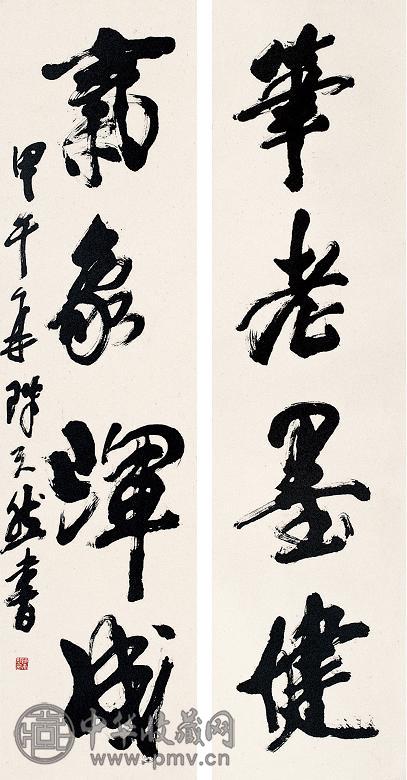 筆老墨健
氣象渾成
甲午年陳天然書
中华收藏网
www.pmv.cn